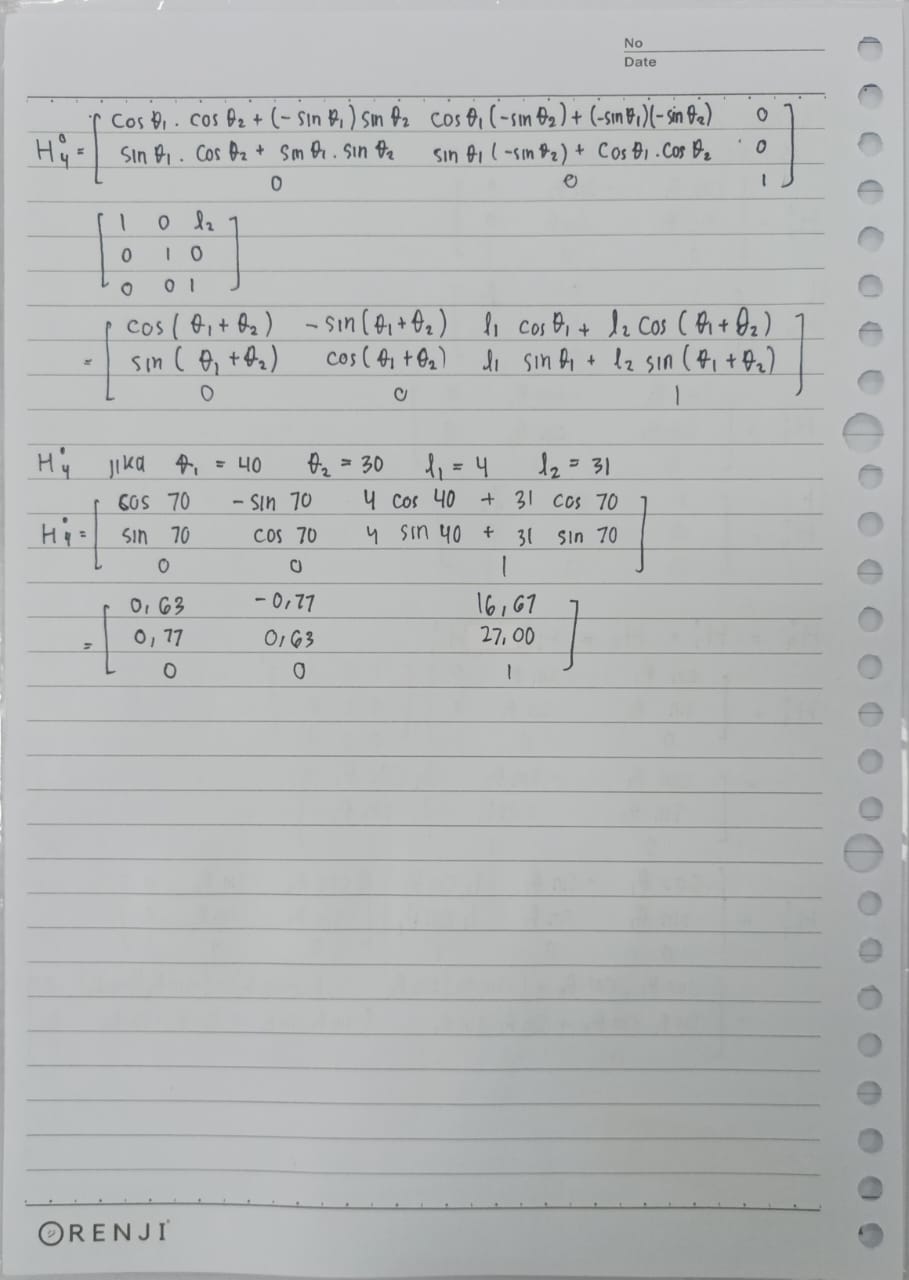 No
Date
H⁰₄ = [ cos θ₁ . cos θ₂ + (- sin θ₁) sin θ₂   cos θ₁ (-sin θ₂) + (-sin θ₁)(-sin θ₂)   0
sin θ₁ . cos θ₂ + sin θ₁ . sin θ₂   sin θ₁ (-sin θ₂) + cos θ₁ . cos θ₂   0
0   0   1 ]
[ 1   0   l₂
0   1   0
0   0   1 ]
= [ cos (θ₁ + θ₂)   - sin (θ₁ + θ₂)   l₁ cos θ₁ + l₂ cos (θ₁ + θ₂)
sin (θ₁ + θ₂)   cos (θ₁ + θ₂)   l₁ sin θ₁ + l₂ sin (θ₁ + θ₂)
0   0   1 ]
H⁰₄ jika θ₁ = 40   θ₂ = 30   l₁ = 4   l₂ = 31
H⁰₄ = [ cos 70   - sin 70   4 cos 40 + 31 cos 70
sin 70   cos 70   4 sin 40 + 31 sin 70
0   0   1 ]
= [ 0,63   -0,77   16,67
0,77   0,63   27,00
0   0   1 ]
ORENJI